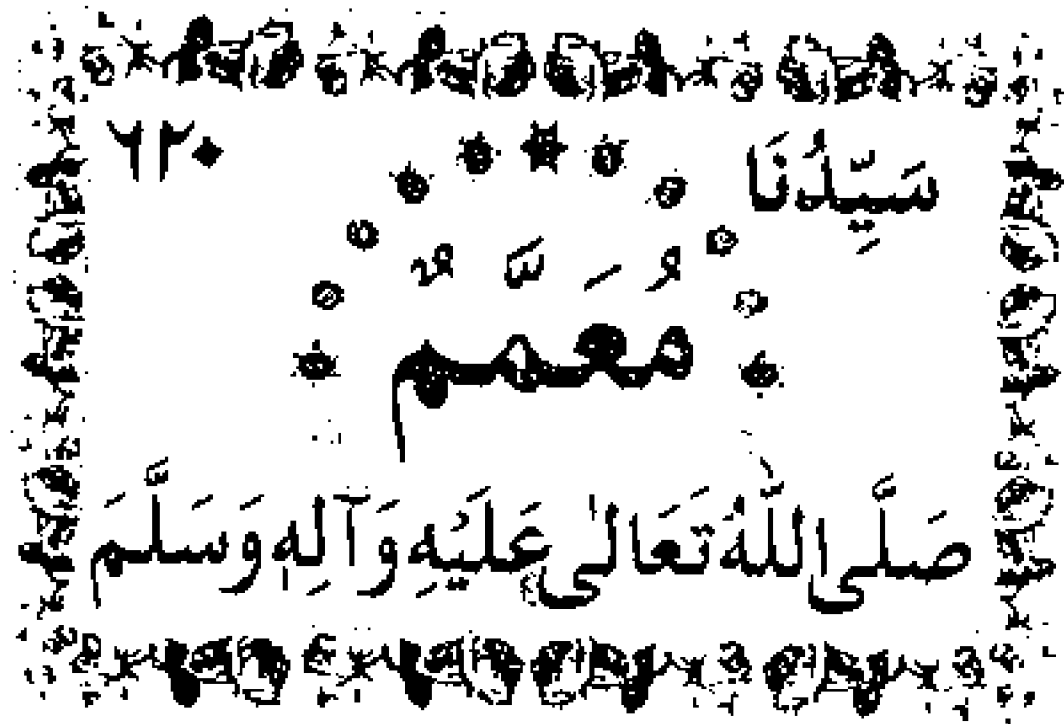 سَيِّدُنَا ٦٢٠
مُعَمَّمٌ
صَلَّى اللّٰهُ تَعَالٰى عَلَيْهِ وَآلِهٖ وَسَلَّمَ